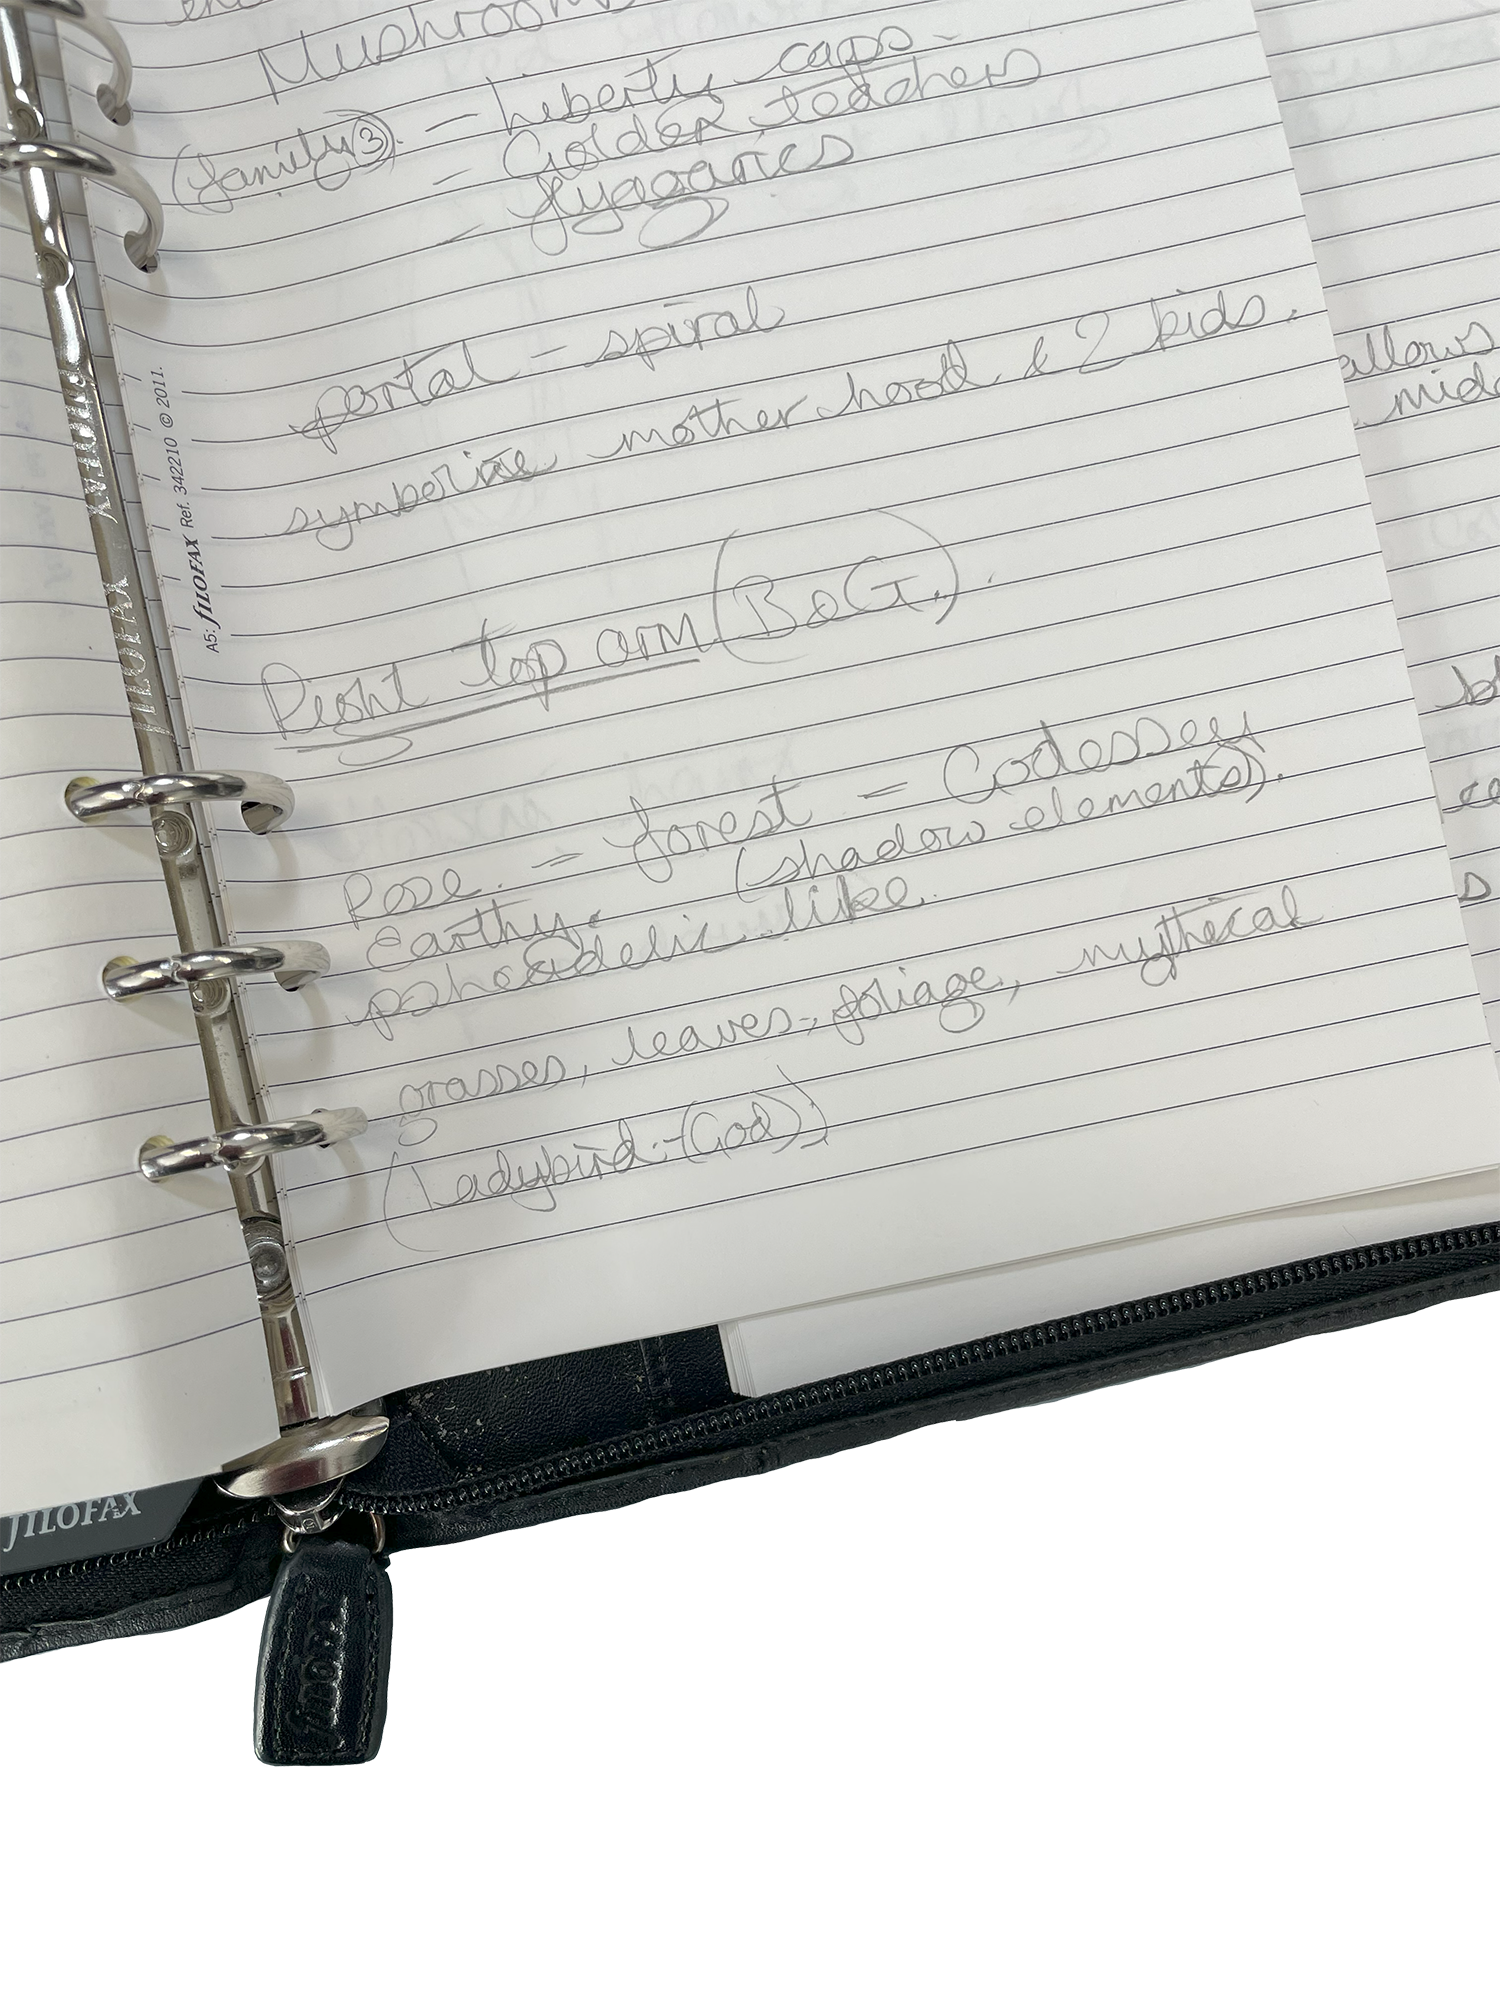 Mushrooms
(family 3) - Liberty caps.
- Golden teachers
- flyagarics
portal - spiral
symbolize mother hood & 2 kids.
Right top arm (B&G.).
Rose. = forest = Godessey
Earthy. (shadow elements).
pshcadelic like.
grasses, leaves, foliage, mythical
(Ladybird:-(God))
A5: FILOFAX Ref. 342210 © 2011.
FILOFAX
FILOFAX
allows
mid
FILOFAX
FILOFAX